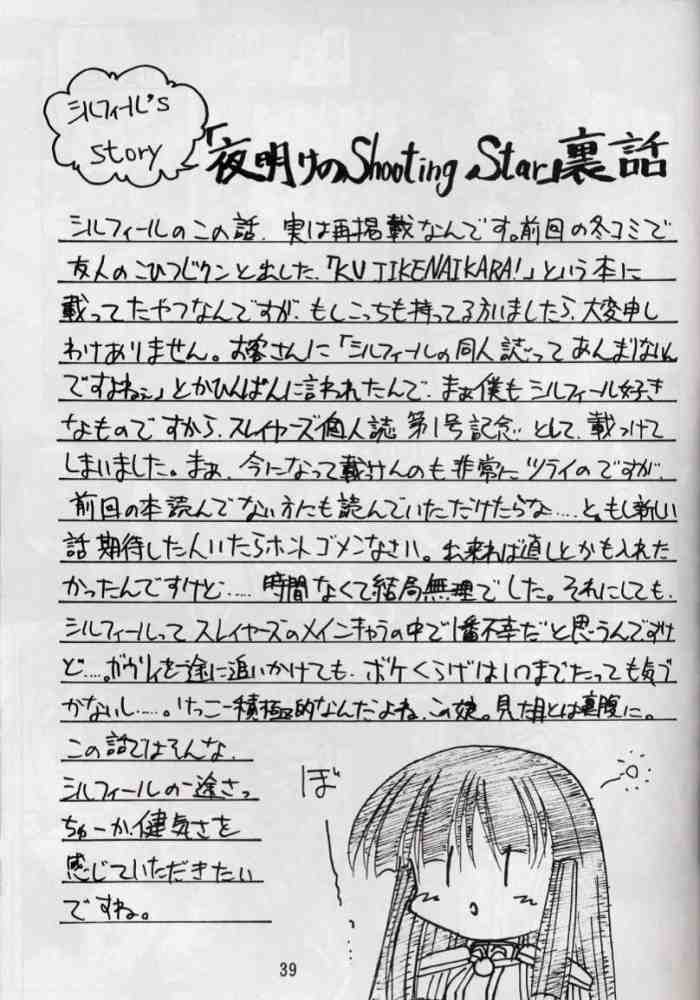 シルフィール's
story
「夜明けのShooting Star」裏話
シルフィールのこの話、実は再掲載なんです。前回の冬コミで
友人のこひつじクンと出した、「KUJIKENAIKARA!」という本に
載ってたやつなんですが、もしこっちも持ってる方いましたら、大変申し
わけありません。お客さんに「シルフィールの同人誌ってあんまりないん
ですよねぇ」とかひんぱんに言われたんで、まぁ僕もシルフィール好き
なものですから、スレイヤーズ個人誌 第1号記念として、載っけて
しまいました。まぁ、今になって載せんのも非常にツライのですが、
前回の本読んでない方にも読んでいただけたらな……と。もし新しい
話期待した人いたらホントゴメンなさい。出来れば直しとかも入れた
かったんですけど……時間なくて結局無理でした。それにしても、
シルフィールってスレイヤーズのメインキャラの中で1番不幸だと思うんですけ
ど……。ガウリイを一途に追いかけても、ボケくらげはいつまでたっても気づ
かないし……。けっこー積極的なんだよね、この娘。見た目とは裏腹に。
この話ではそんな、
シルフィールの一途さっ
ちゅーか、健気さを
感じていただきたい
ですね。
ぼ
39